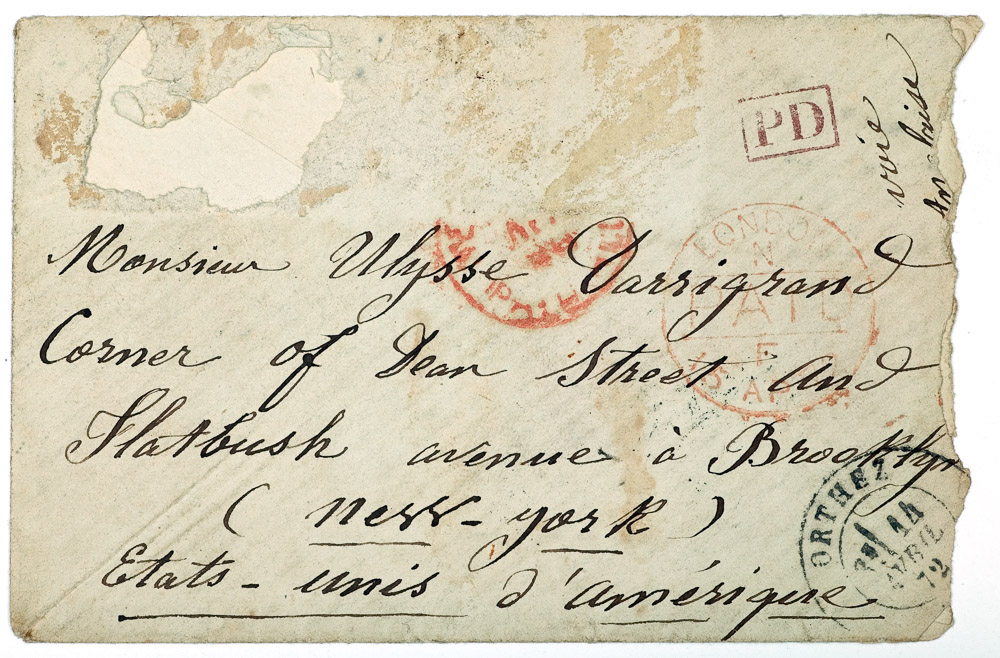 PD
voie
LONDON
N
PAID
F
15 AP
Monsieur Ulysse Darrigrand
Corner of Dean Street And
Flatbush avenue à Brooklyn
( New-york )
Etats-unis d'amérique
ORTHEZ
14
AVRIL
72